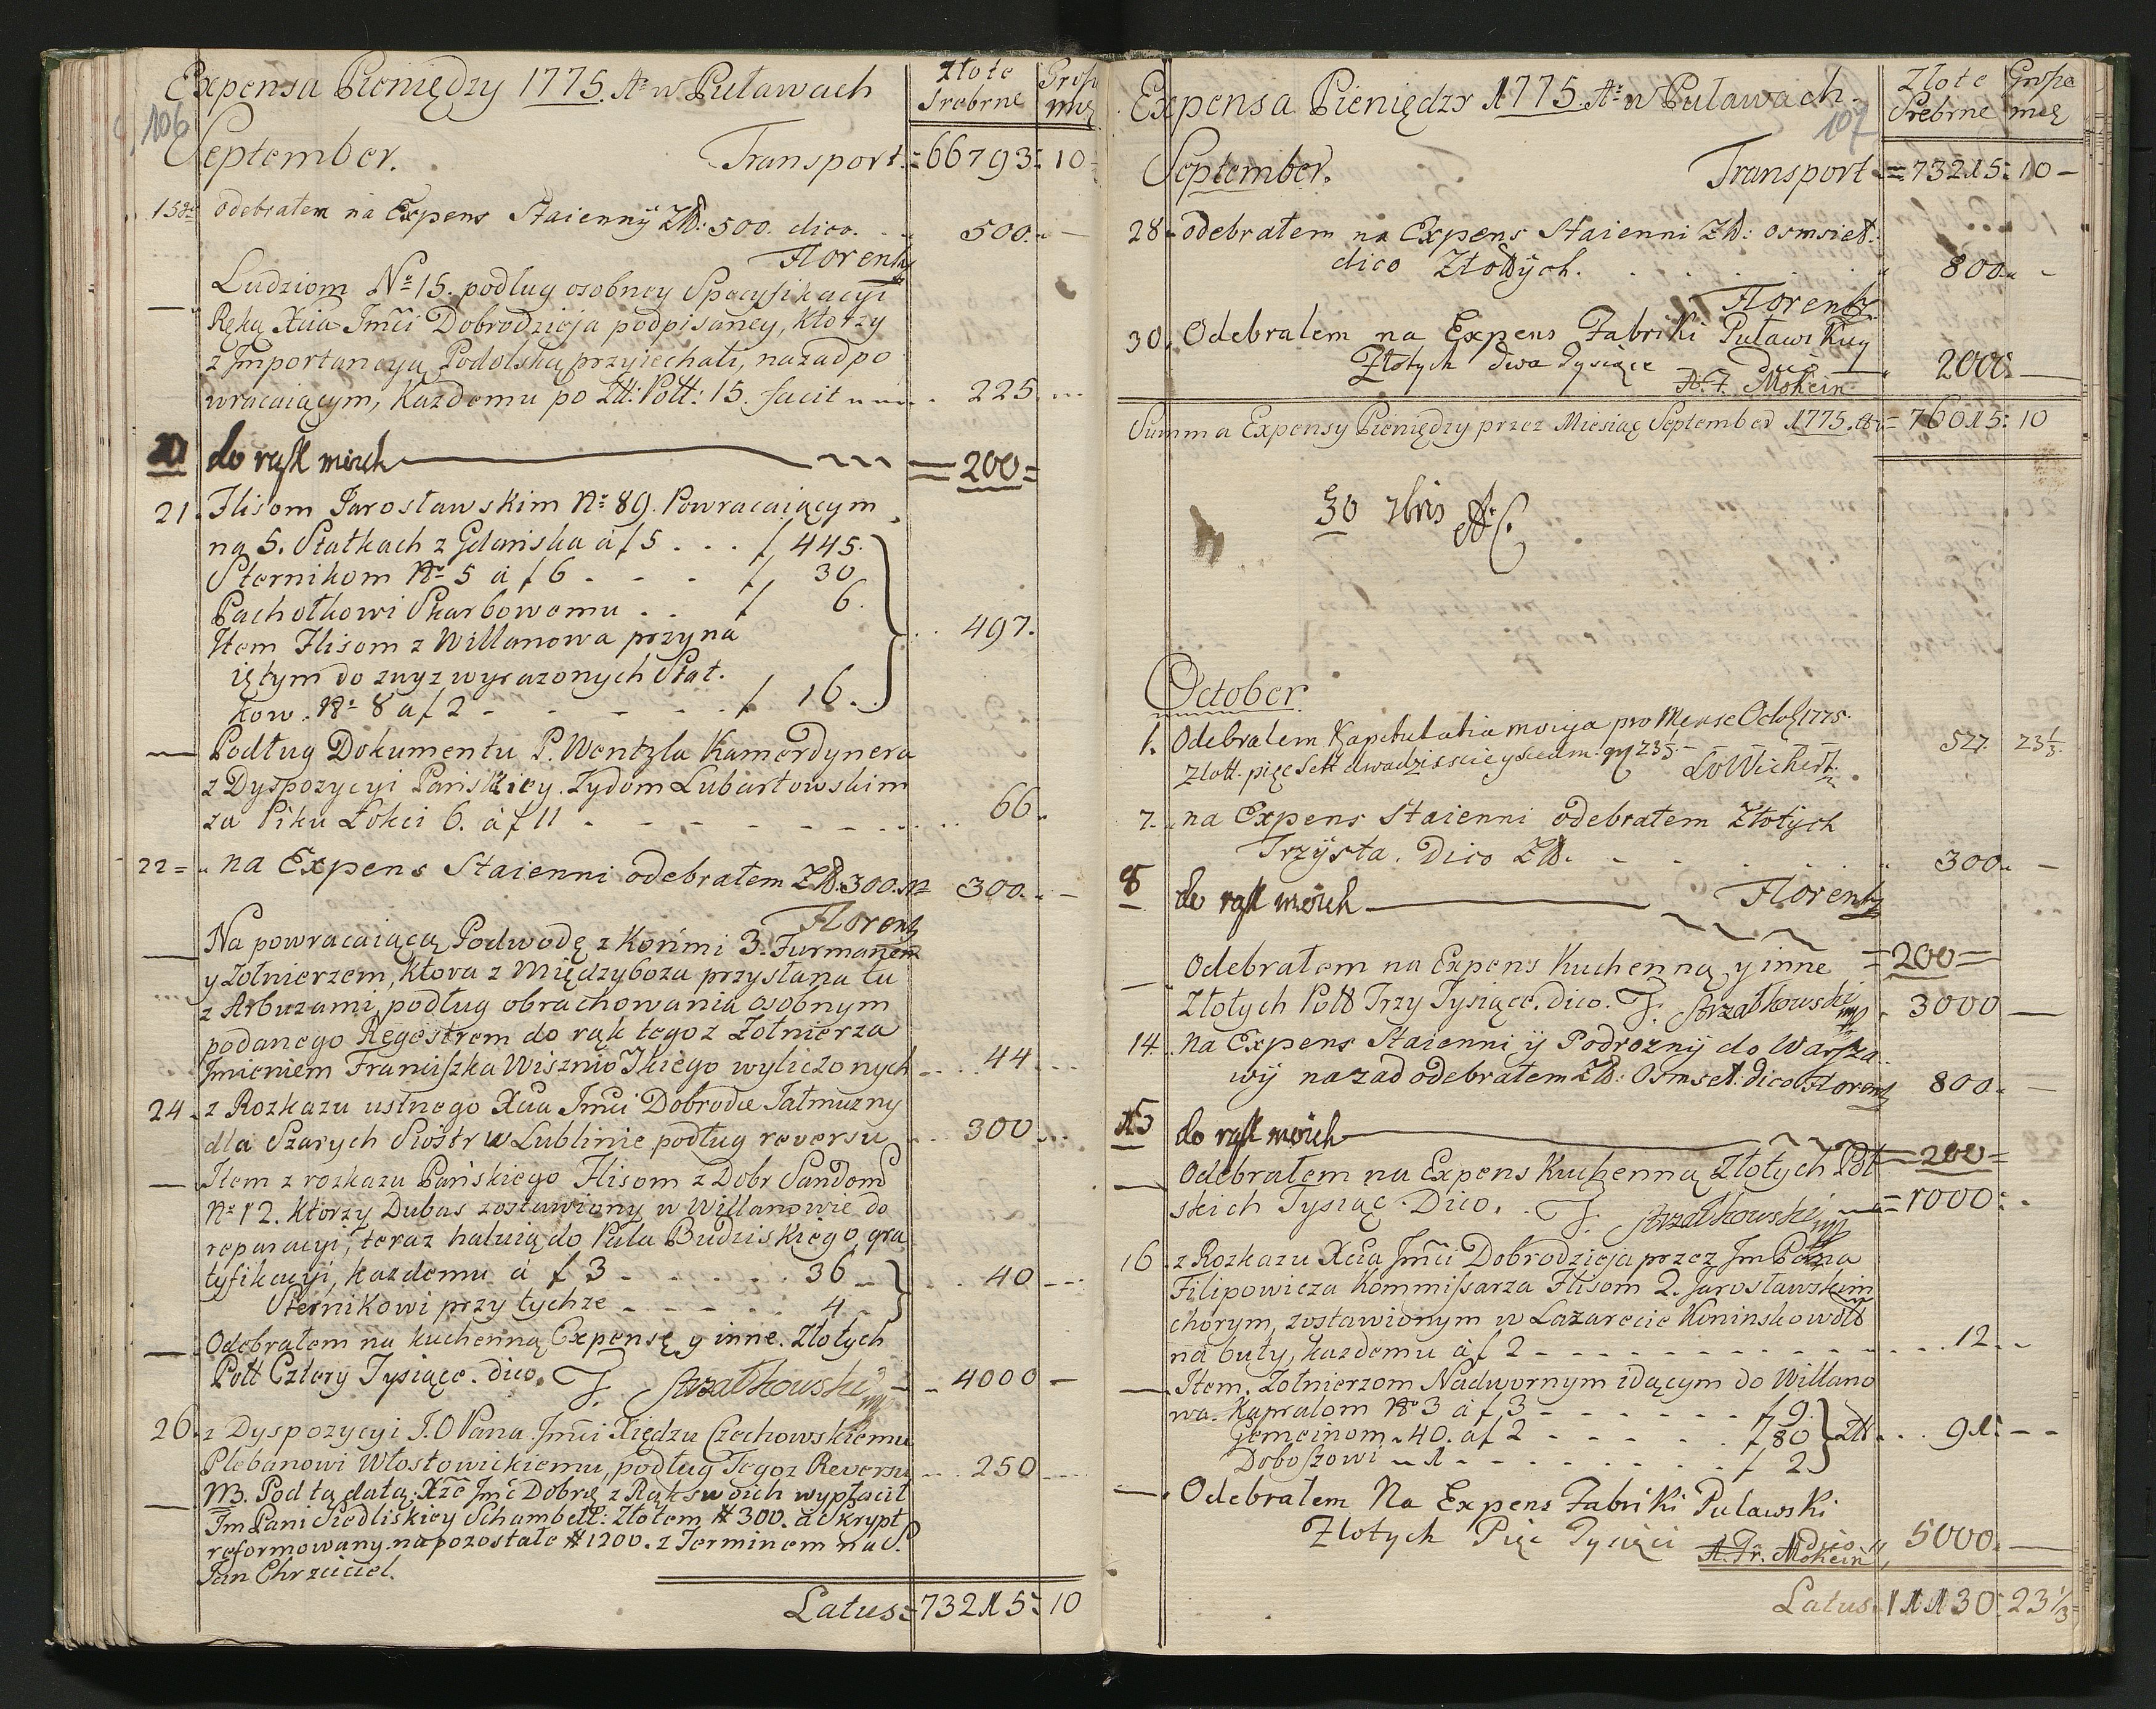 Expensa Pieniędzy 1775. Aº w Puławach
Złote Srebrne
Grosz mie
106
September.
Transport = 66793: 10
15 odebrałem na Expens Staienny Zł: 500. dico. 500. -
Florentz
Ludziom Nº 15. podług osobney Specyfikacyi
Ręką Xcia Jmci Dobrodzieja podpisaney, ktorzy
z Importancyą Podolską przyiechali, nazad po
wracaiącym, każdemu po Złł: Poll: 15. facit 225.
do rąk moich 200 =
21. Flisom Jarosławskim Nº 89. Powracaiącym
na 5. Statkach z Gdańska á f 5 . . . f 445.
Sternikom Nº 5 á f 6 - - - f 30
Pachołkowi Skarbowemu . . f 6.
497.
Item Flisom z Willanowa przyna
iętym do zwyz wyrazonych Stat.
kow. Nº 8 a f 2 - - - - f 16.
Podług Dokumentu P. Wentzla Kamerdynera
z Dyspozycyi Pańskiey. Zydom Lubartowskim
za Piku Łokci 6. á f 11 - - - - 66.
22 = na Expens Staienni odebrałem Zł. 300. 300. -
Florentz
Na powracaiącą Podwodę z Końmi 3. Furmanem
y Zołnierzem, Ktora z Międzyboza przysłana tu
z Arbuzami, podług obrachowania osobnym
podanego Regestrem do rąk tegoz Zołnierza
Jmieniem Franciszka Wiszniowskiego wyliczonych 44
24. z Rozkazu ustnego Xcia Jmci Dobrodzie Jałmuzny
dla Szarych Siostr w Lublinie podług reversu 300
Item z rozkazu Pańskiego Flisom z Dobr Sandom
Nº 12. ktorzy Dubas zostawiony w Willanowie do
reparacyi, teraz haluią do Pala Budziskiego, gra
tyfikacyi, kazdemu á f 3 - - - - 36
40
Sternikowi przy tychze - - - - 4
Odebrałem na kuchenną Expensę y inne. Złotych
Poll Cztery Tysiące. dico. J. Strzałkowski 4000 -
26. z Dyspozycyi J.O Pana Jmci Xiędzu Czechowskiemu
Plebanowi Włostowickiemu, podług Tegoz Reversu 250
NB. Pod tą datą. Xże Jmć Dobrdz z Rąk swoich wypłacił
Jm Pani Siedliskiey Schambell: Złotem # 300. a Skrypt
reformowany na pozostałe # 1200. z Terminem na S.
Jan Chrzciciel.
Latus = 73215: 10
Expensa Pieniędzy 1775. Aº w Puławach
Złote Srebrne
Grosze mie
107
September.
Transport = 73215: 10 -
28 - odebrałem na Expens Staienni Zł: osmset:
dico Złotÿch. 800. -
Florentz
30. Odebralem na Expens Fabriki Pulawskiey
Zlotych dwa Tysiące dico 2000. -
A. F. Mokein
Summa Expensy Pieniędzy przez Miesiąc September 1775. = 76015: 10
30 7bris AC
October
1. Odebralem Kapitulatia moieja pro Mense Octob 1775.
527 23⅓.
Zlott. pięc Sett dwadziescie y siedm. gr 23⅓ - LoWichert.
7. na Expens Staienni odebrałem Złotÿch
Trzÿsta. Dico Zł. - - - 300. -
Florentz
8 do rąk moich 200 =
Odebrałem na Expens Kuchenną y inne
Złotych Poll Trzy Tysiące. dico. J. Strzałkowski 3000 -
14. na Expens Staienni ÿ Podroznÿ do Warsza
wÿ nazad odebrałem Zł: Osmset: dico Florentz 800. -
15 do rąk moich 200 =
Odebrałem na Expens Kuchenną Złotych Pol
skich Tysiąc. Dico. J. Strzałkowski = 1000:
16. z Rozkazu Xcia Jmci Dobrodzieja przez Jm Pana
Filipowicza Kommissarza Flisom 2. Jarosławskim
chorym, zostawionym w Lazarecie Koninskowol
na buty, kazdemu á f 2 - - - - 12.
Item. Zołnierzom Nadwornym idącym do Willano
wa. Kapralom Nº 3 á f 3 - - - - f 9.
Gemeinom 40. á f 2 - - - - f 80 Złł 91: - -
Doboszowi 1 - - - - f 2
Odebralem Na Expens Fabriki Pulawski
Zlotych Pięc Tysięci dico 5000. -
A. Fr. Mokein
Latus 11130: 23⅓